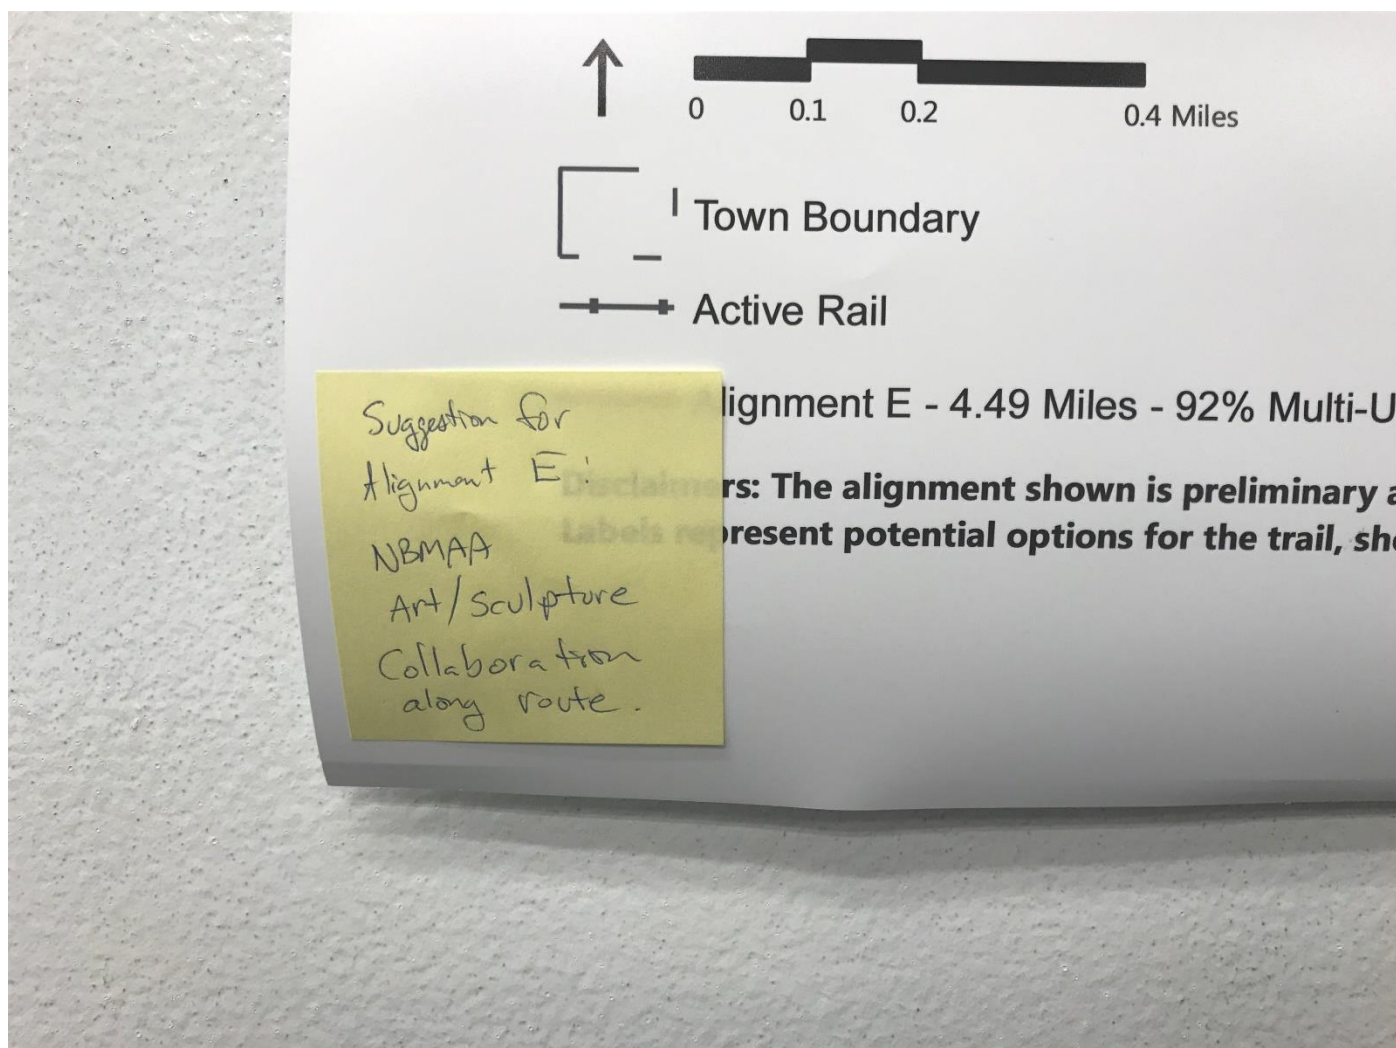 0 0.1 0.2 0.4 Miles
Town Boundary
Active Rail
Alignment E - 4.49 Miles - 92% Multi-U
Disclaimers: The alignment shown is preliminary a
Labels represent potential options for the trail, sh
Suggestion for
Alignment E:
NBMAA
Art/Sculpture
Collaboration
along route.